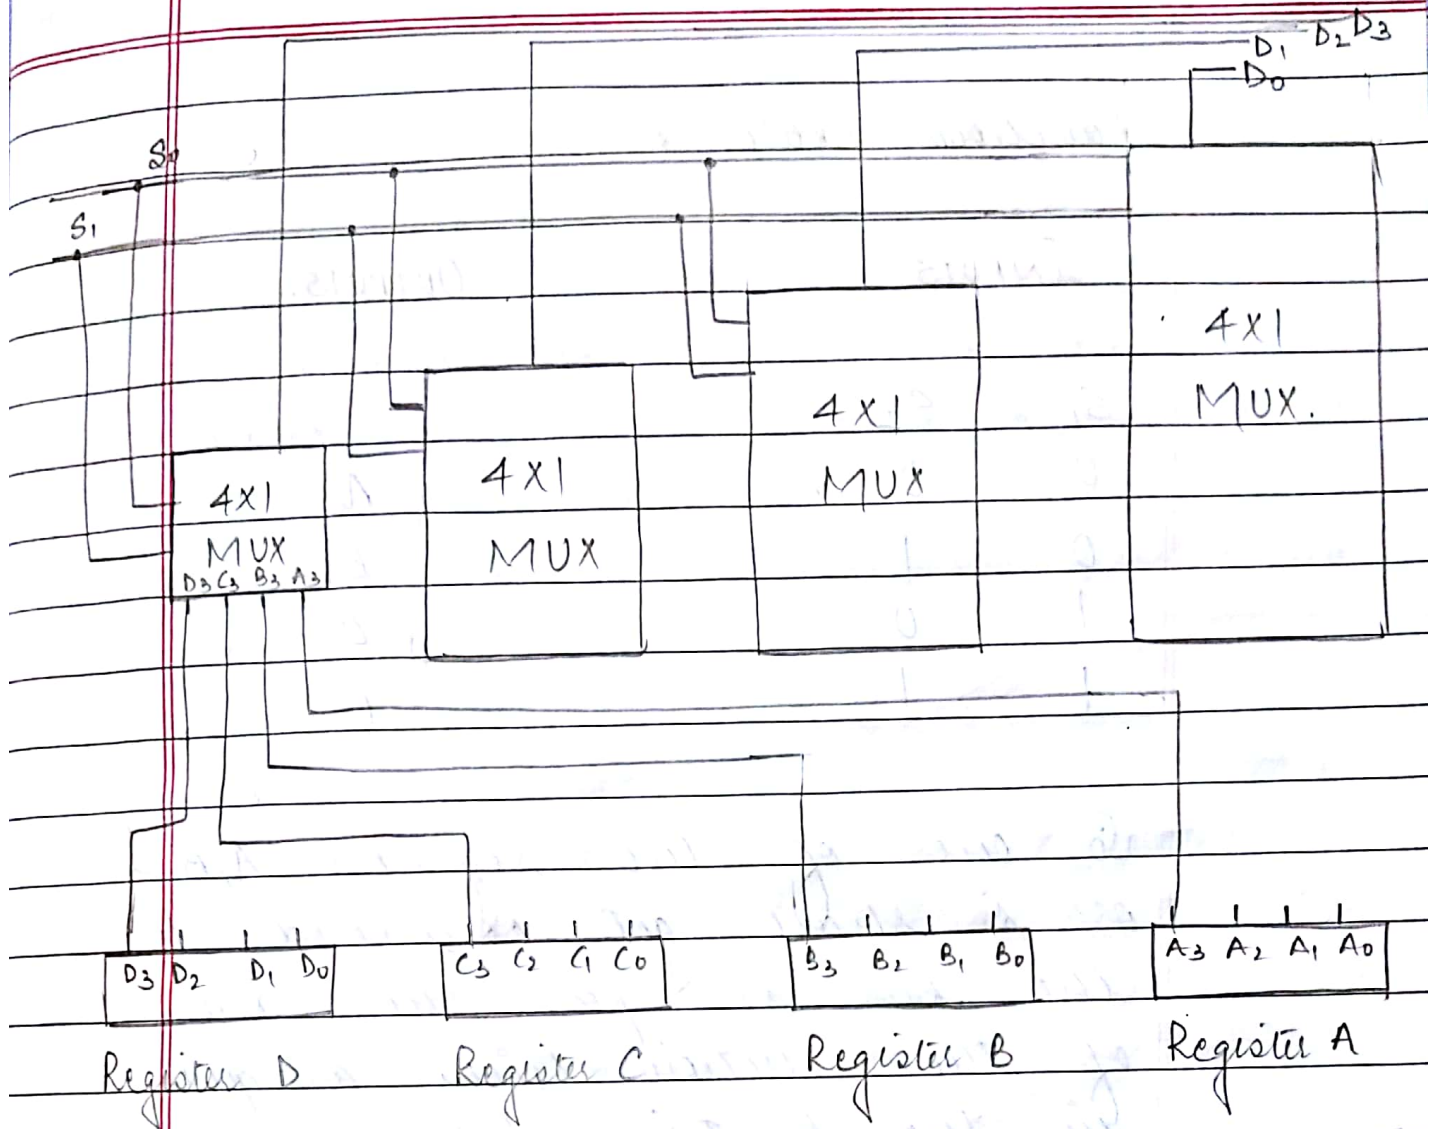 D1 D2 D3
D0
S0
S1
4X1
MUX.
4X1
MUX
4X1
MUX
4X1
MUX
D3 C3 B3 A3
D3 D2 D1 D0
C3 C2 C1 C0
B3 B2 B1 B0
A3 A2 A1 A0
Register D
Register C
Register B
Register A